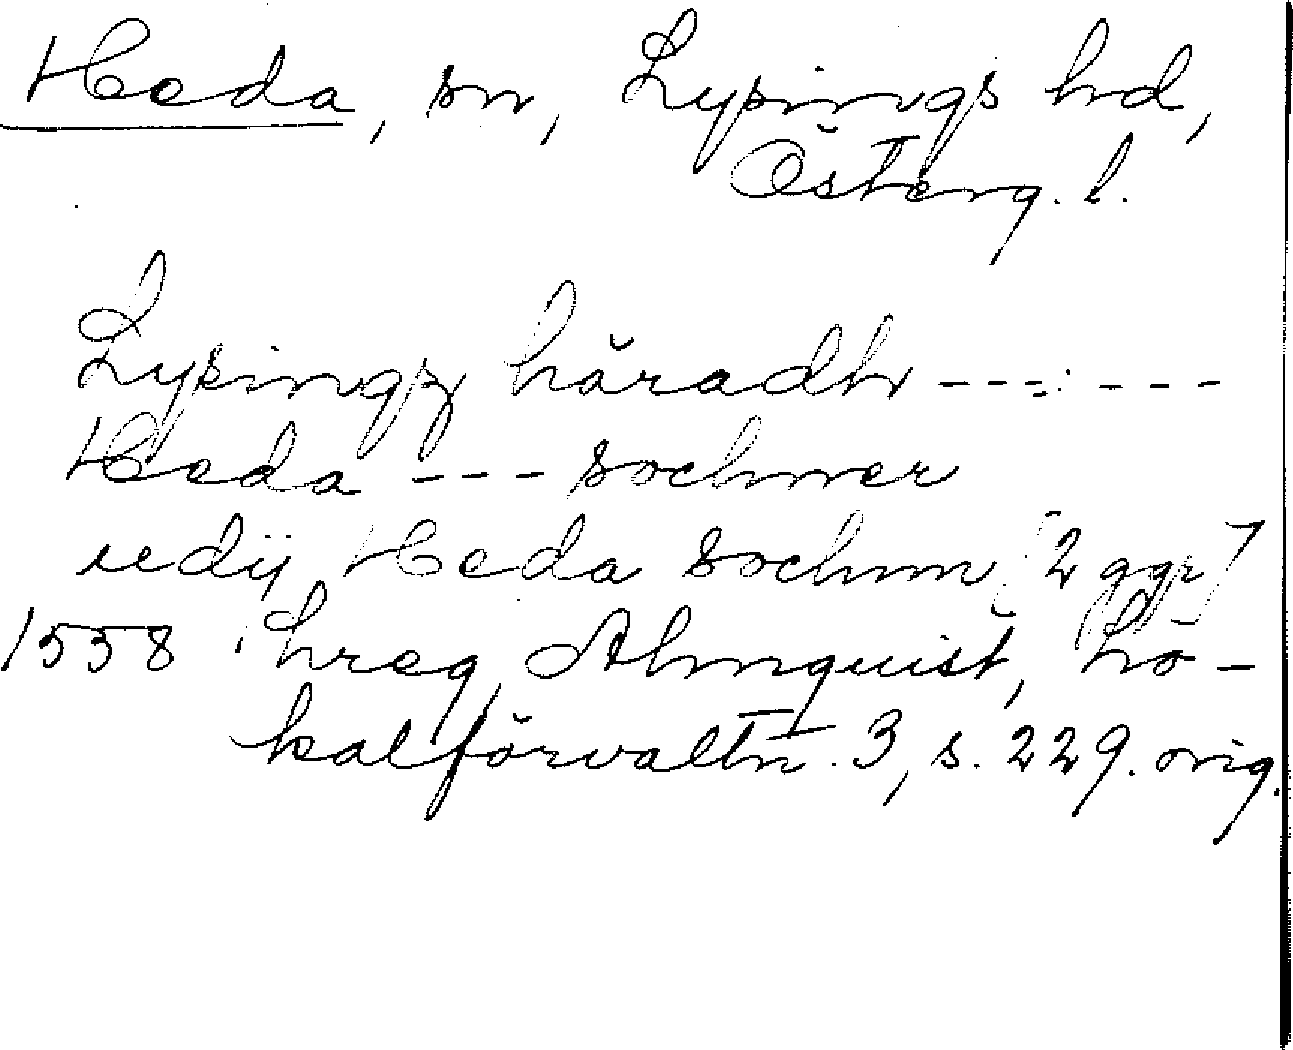 Heda, sn, Lysings hd,
Österg. l.
Lysingz häradh --- : ---
Heda --- sochner
udij Heda sochnn [2 ggr]
1558 hreg, Almquist, Lo-
kalförvaltn. 3, s. 229. orig.